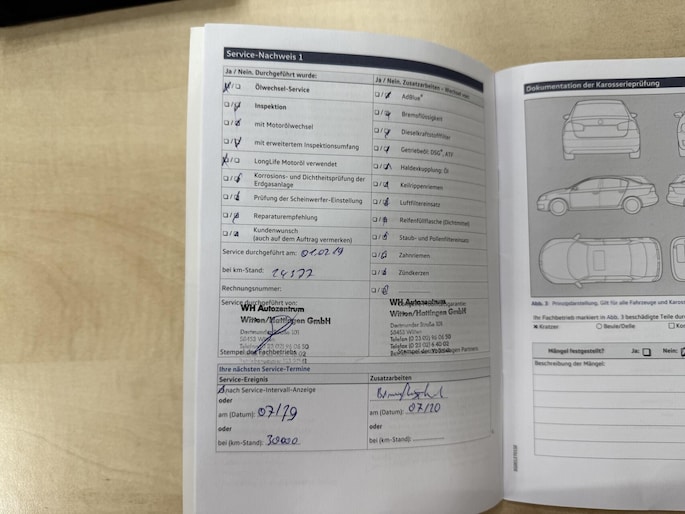 Service-Nachweis 1
Ja / Nein. Durchgeführt wurde:
Ölwechsel-Service
Inspektion
mit Motorölwechsel
mit erweitertem Inspektionsumfang
LongLife Motoröl verwendet
Korrosions- und Dichtheitsprüfung der
Erdgasanlage
Prüfung der Scheinwerfer-Einstellung
Reparaturempfehlung
Kundenwunsch
(auch auf dem Auftrag vermerken)
Service durchgeführt am: 01.02.19
bei km-Stand:
Rechnungsnummer:
Service durchgeführt von:
WH Autozentrum
Witten/Hattingen GmbH
Dortmunder Straße
58453 Witten
Stempel des Fachbetriebs
Ja / Nein. Zusatzarbeiten – Wechsel von:
AdBlue®
Bremsflüssigkeit
Dieselkraftstofffilter
Getriebeöl: DSG®, ATF
Haldexkupplung: Öl
Keilrippenriemen
Luftfiltereinsatz
Reifenfüllflasche (Dichtmittel)
Staub- und Pollenfiltereinsatz
Zahnriemen
Zündkerzen
WH Autozentrum
Witten/Hattingen GmbH
Dortmunder Straße
58453 Witten
Ihre nächsten Service-Termine
Service-Ereignis
nach Service-Intervall-Anzeige
oder
am (Datum): 07/19
oder
bei (km-Stand): 30000
Zusatzarbeiten
am (Datum): 07/20
oder
bei (km-Stand):
Dokumentation der Karosserieprüfung
Abb. 3 Prinzipdarstellung. Gilt für alle Fahrzeuge und Karos
Ihr Fachbetrieb markiert in Abb. 3 beschädigte Teile durc
Kratzer
Beule/Delle
Mängel festgestellt?
Ja:
Nein:
Beschreibung der Mängel: